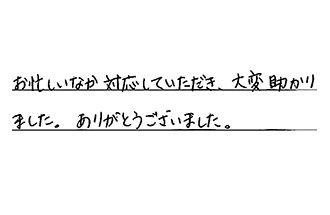 お忙しいなか対応していただき、大変助かり
ました。ありがとうございました。